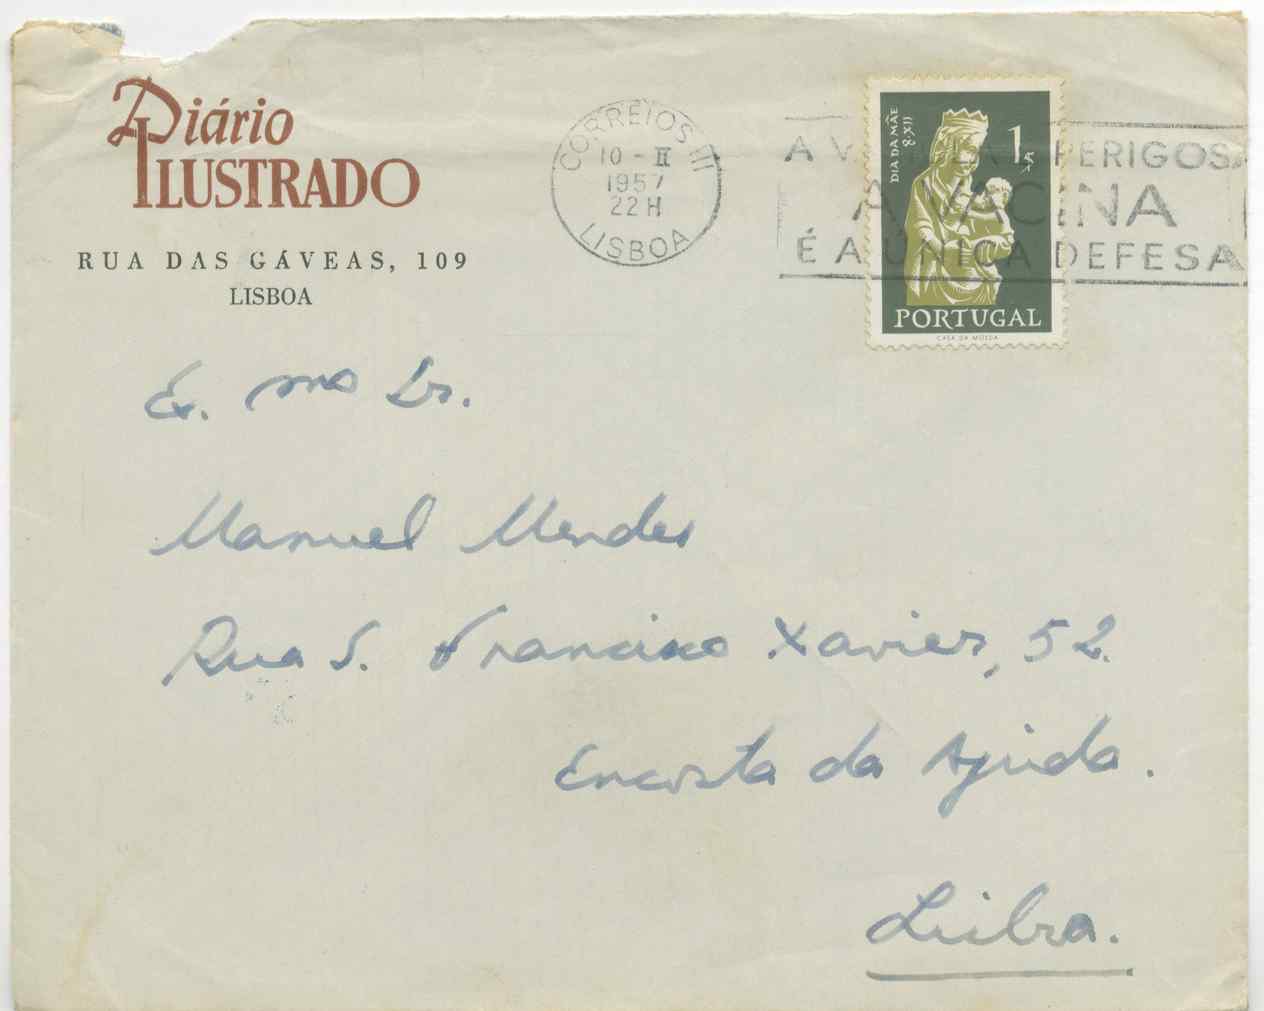 Diário
ILUSTRADO
RUA DAS GÁVEAS, 109
LISBOA
CORREIOS III
10 - II
1957
22 H
LISBOA
DIA DA MÃE
8-XII
1$
PORTUGAL
CASA DA MOEDA
A PERIGOSA
A VACINA
É A ÚNICA DEFESA
Ex. mo Dr.
Manuel Mendes
Rua S. Francisco Xavier, 52.
Encosta da Ajuda.
Lisboa.